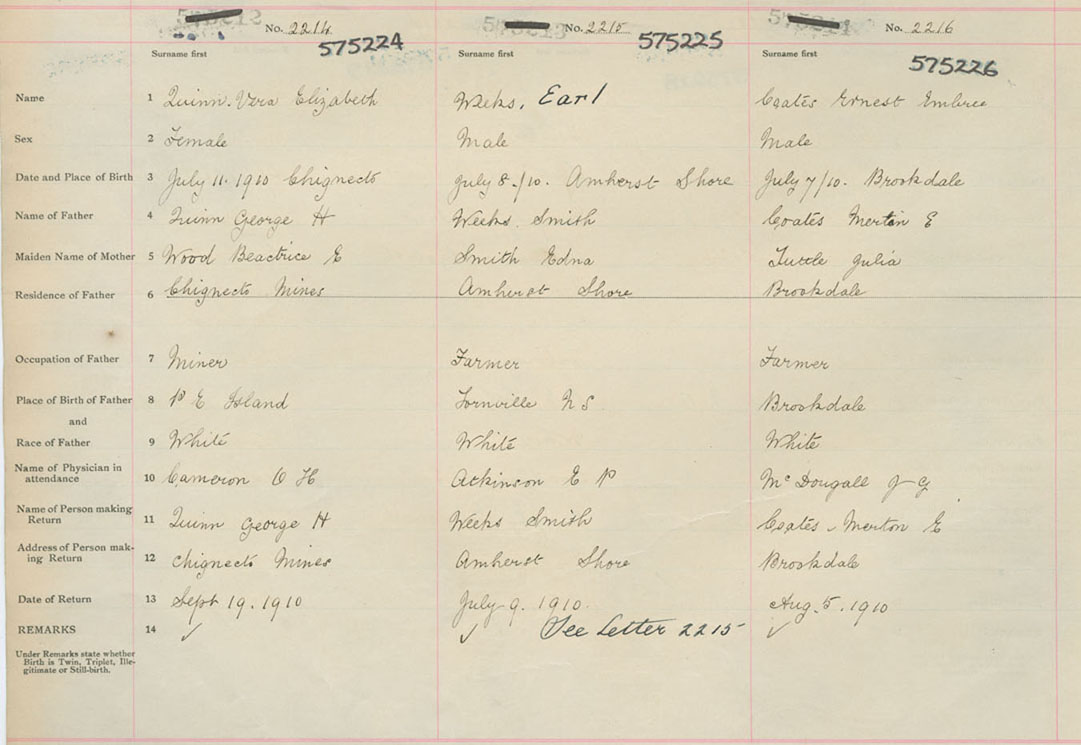 No. 2214 No. 2215 No. 2216
575224 575225 575226
Surname first Surname first Surname first
Name 1 Quinn Vera Elizabeth Weeks, Earl Coates Ernest Embree
Sex 2 Female Male Male
Date and Place of Birth 3 July 11. 1910 Chignecto July 8./10. Amherst Shore July 7/10. Brookdale
Name of Father 4 Quinn George H Weeks Smith Coates Merton E
Maiden Name of Mother 5 Wood Beatrice E Smith Edna Tuttle Julia
Residence of Father 6 Chignecto Mines Amherst Shore Brookdale
Occupation of Father 7 Miner Farmer Farmer
Place of Birth of Father 8 P E Island N S. Brookdale
and
Race of Father 9 White White White
Name of Physician in
attendance 10 Cameron O H Atkinson E P McDougall J G
Name of Person making
Return 11 Quinn George H Weeks Smith Coates Merton E
Address of Person mak-
ing Return 12 Chignecto Mines Amherst Shore Brookdale
Date of Return 13 Sept 19. 1910 July 9. 1910. Aug. 5. 1910
REMARKS 14 ✓ ✓ See Letter 2215 ✓
Under Remarks state whether
Birth is Twin, Triplet, Ille-
gitimate or Still-birth.